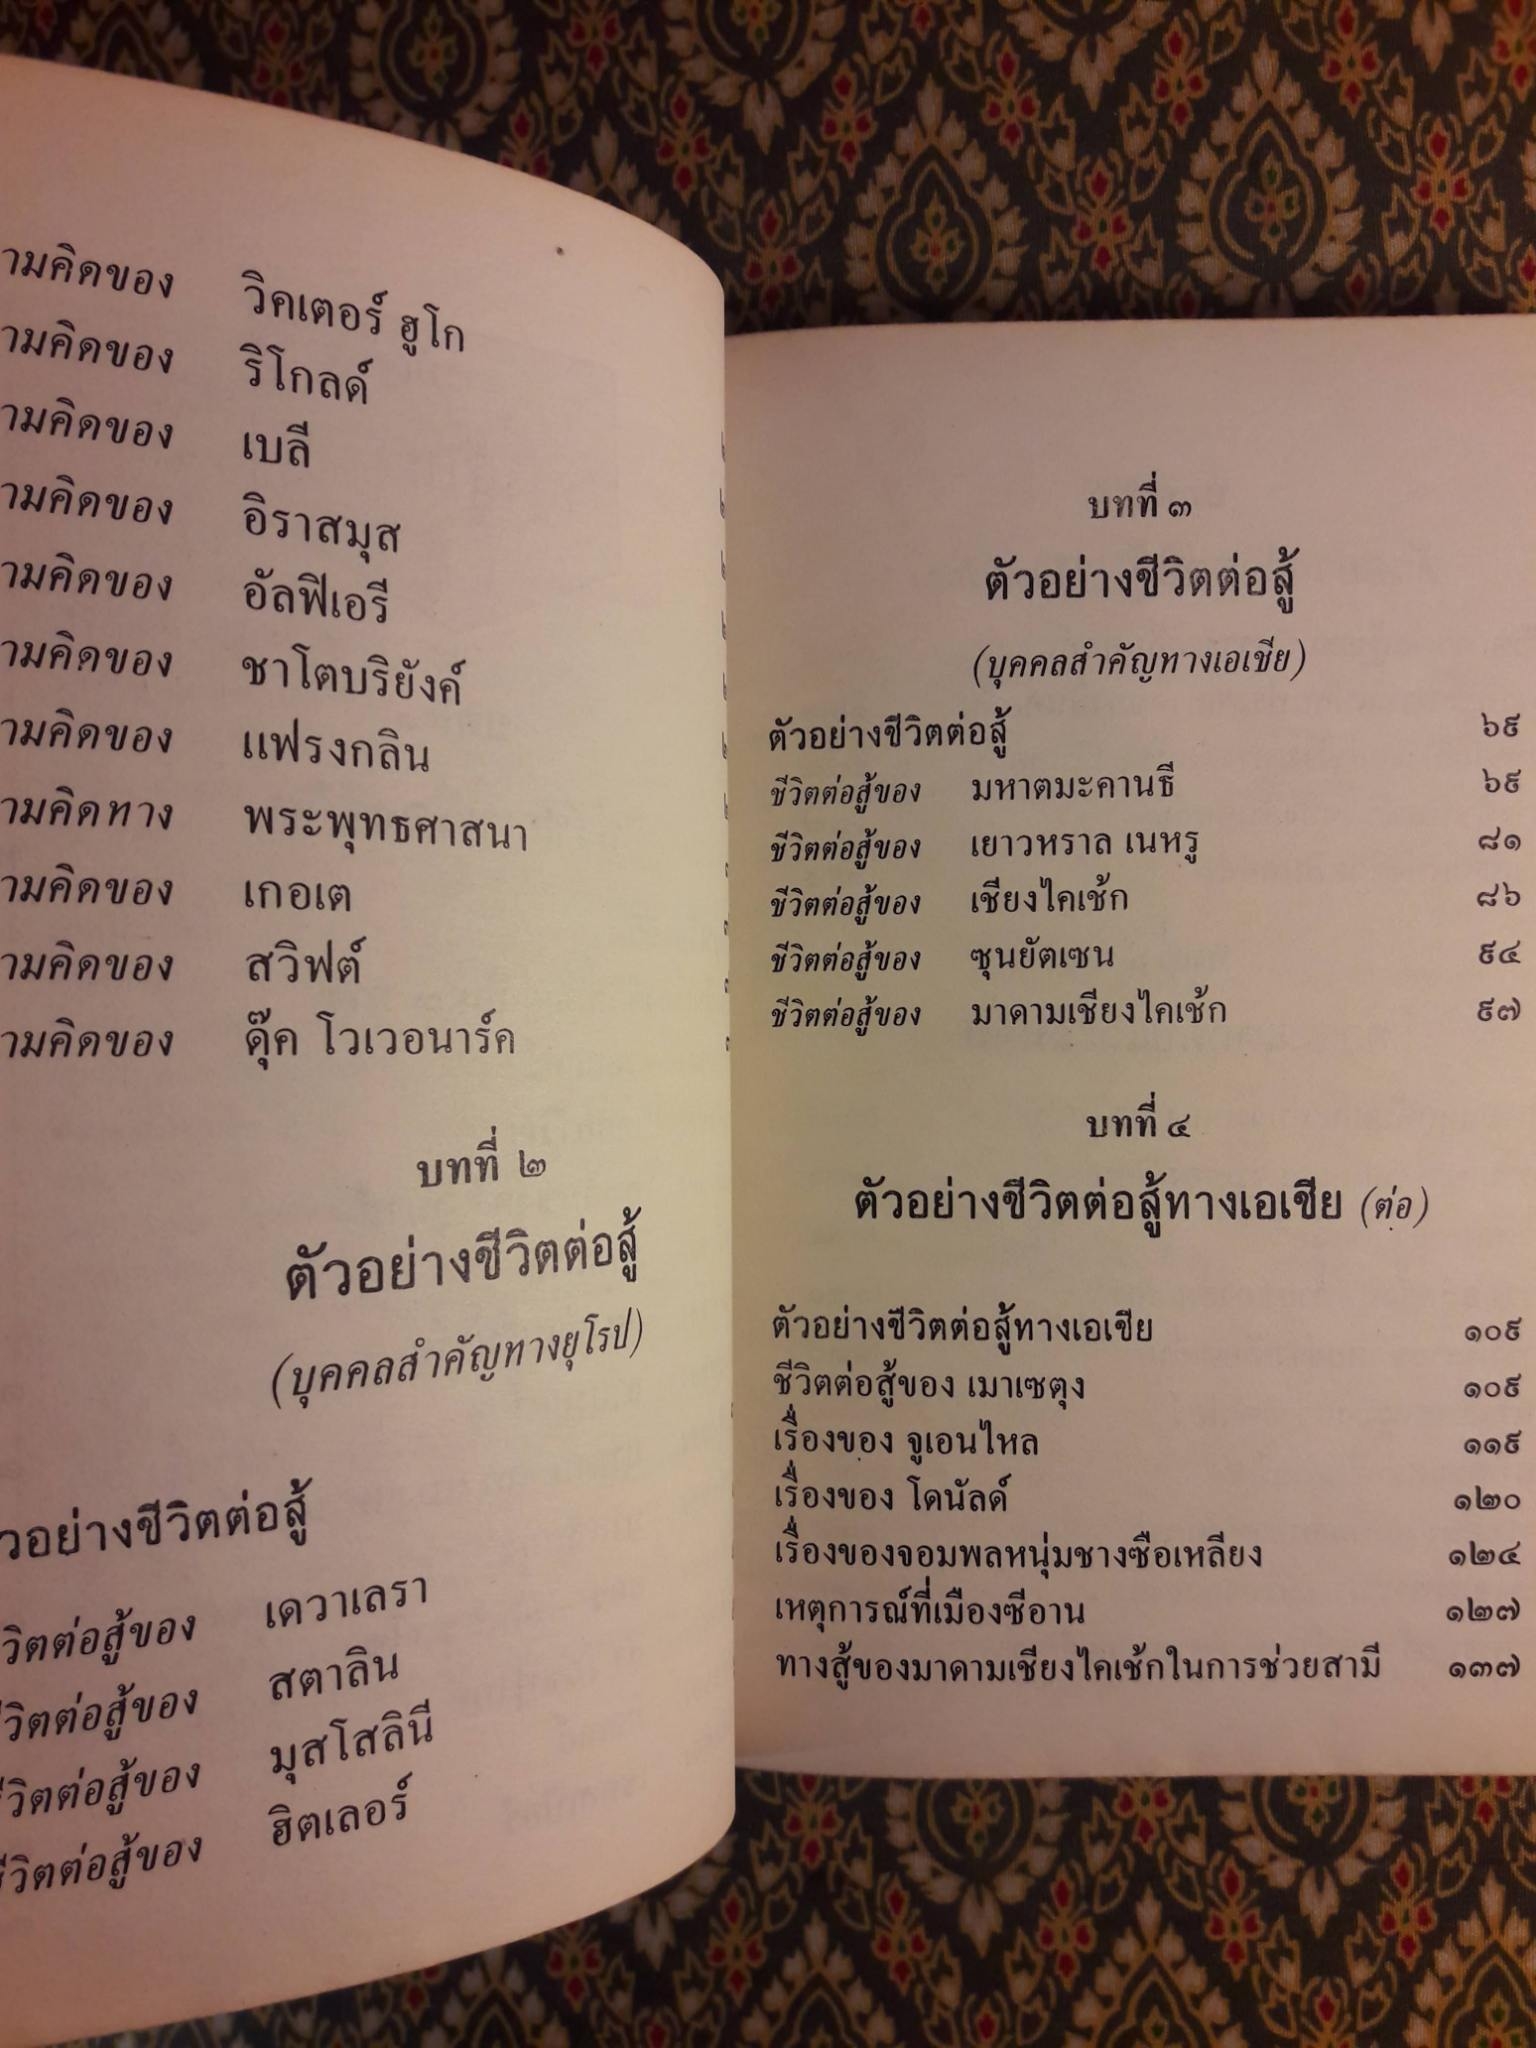 ามคิดของ วิคเตอร์ ฮูโก
ามคิดของ ริโกลด์
ามคิดของ เบลี
ามคิดของ อิราสมุส
ามคิดของ อัลฟิเอรี
ามคิดของ ชาโตบริยังค์
ามคิดของ แฟรงกลิน
ามคิดทาง พระพุทธศาสนา
ามคิดของ เกอเต
ามคิดของ สวิฟต์
ามคิดของ ดุ๊ค โวเวอนาร์ค
บทที่ ๒
ตัวอย่างชีวิตต่อสู้
(บุคคลสำคัญทางยุโรป)
วอย่างชีวิตต่อสู้
ชีวิตต่อสู้ของ เดวาเลรา
ชีวิตต่อสู้ของ สตาลิน
ชีวิตต่อสู้ของ มุสโสลินี
ชีวิตต่อสู้ของ ฮิตเลอร์
บทที่ ๓
ตัวอย่างชีวิตต่อสู้
(บุคคลสำคัญทางเอเชีย)
ตัวอย่างชีวิตต่อสู้ ๖๙
ชีวิตต่อสู้ของ มหาตมะคานธี ๖๙
ชีวิตต่อสู้ของ เยาวหราล เนหรู ๘๑
ชีวิตต่อสู้ของ เชียงไคเช้ก ๘๖
ชีวิตต่อสู้ของ ซุนยัตเซน ๙๔
ชีวิตต่อสู้ของ มาดามเชียงไคเช้ก ๙๗
บทที่ ๔
ตัวอย่างชีวิตต่อสู้ทางเอเชีย (ต่อ)
ตัวอย่างชีวิตต่อสู้ทางเอเชีย ๑๐๙
ชีวิตต่อสู้ของ เมาเซตุง ๑๐๙
เรื่องของ จูเอนไหล ๑๑๙
เรื่องของ โดนัลด์ ๑๒๐
เรื่องของจอมพลหนุ่มชางซือเหลียง ๑๒๔
เหตุการณ์ที่เมืองซีอาน ๑๒๗
ทางสู้ของมาดามเชียงไคเช้กในการช่วยสามี ๑๓๗